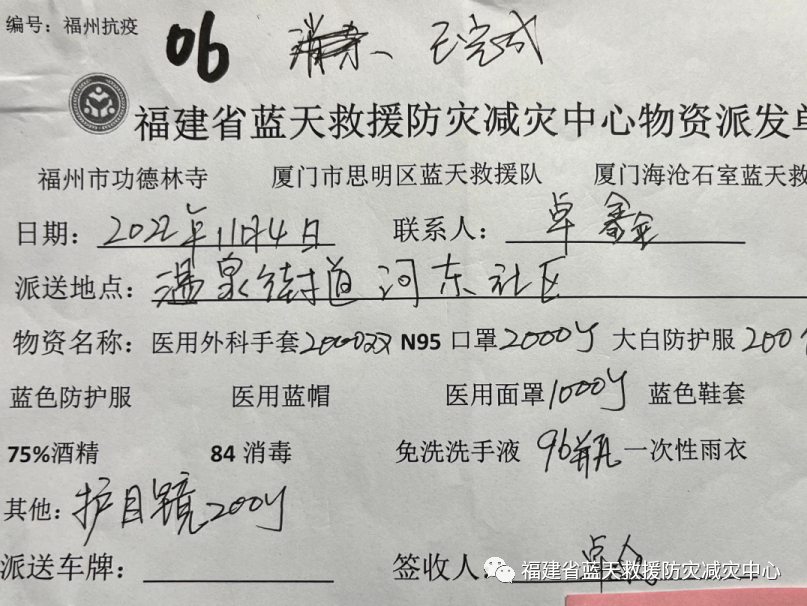 编号：福州抗疫 06 已完成
福建省蓝天救援防灾减灾中心物资派发单
福州市功德林寺 厦门市思明区蓝天救援队 厦门海沧石室蓝天救
日期：2022年11月4日 联系人：卓鑫
派送地点：温泉街道河东社区
物资名称：医用外科手套2000双 N95口罩2000个 大白防护服200
蓝色防护服 医用蓝帽 医用面罩1000个 蓝色鞋套
75%酒精 84消毒 免洗洗手液 96瓶 一次性雨衣
其他：护目镜200个
派送车牌： 签收人：卓
福建省蓝天救援防灾减灾中心